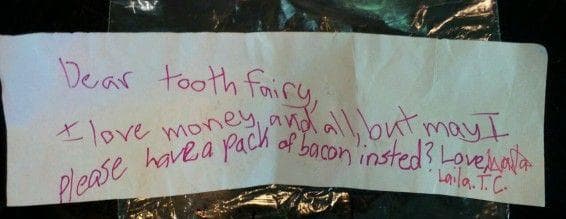 Dear tooth fairy,
I love money, and all, but may I
please have a pack of bacon insted? Love,
Laila. T. C.